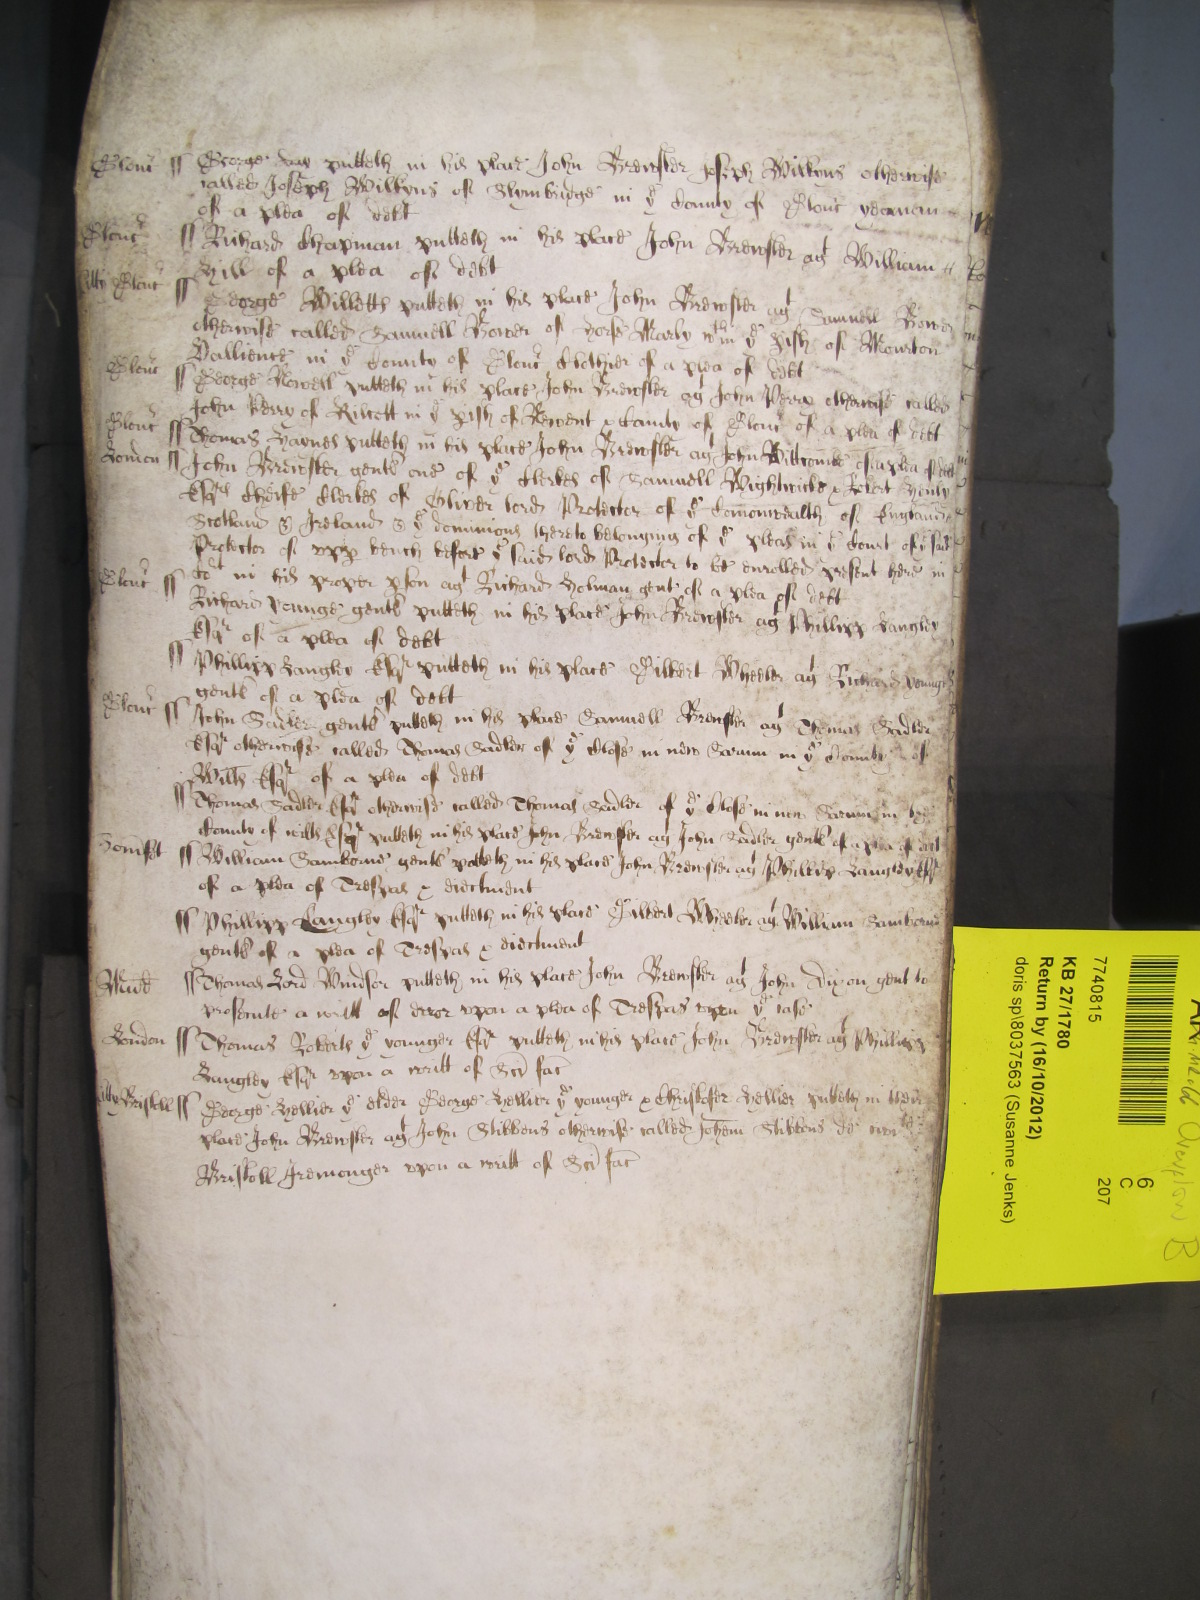 Glouc ss George Day putteth in his place John Brewster Joseph Wilkyns otherwise
called Joseph Wilkyns of Slymbridge in ye County of Glouc yeoman
of a plea of debt
Glouc ss Richard Chapman putteth in his place John Brewster agt William
Hill of a plea of debt
Citty Glouc ss George Willetts putteth in his place John Brewster agt Samuell Bower
otherwise called Samuell Bower of wthin ye pish of
in ye County of Glouc Clothier of a plea of debt
Glouc ss George Nowell putteth in his place John Brewster agt John Perry otherwise called
John Perry of in ye pish of Newent & County of Glouc of a plea of debt
Glouc ss Thomas Haynes putteth in his place John Brewster agt John Witcombe of a plea of debt
London ss John Brewster gentl one of ye Clerkes of Samuell Wightwicke & Robert Henly
Esqrs Cheife Clerkes of Oliver lord Protector of ye Comonwealth of England
Scotland & Ireland & ye dominions thereto belonging of ye pleas in ye Court of ye said
Protector of upp bench before ye said lord Protector to be enrolled present here in
Cot in his proper pson agt Richard Holman gent of a plea of debt
Glouc ss Richard Younge gentl putteth in his place John Brewster agt Phillipp Langley
Esqr of a plea of debt
ss Phillipp Langley Esqr putteth in his place Gilbert Wheeler agt Richard Younge
gentl of a plea of debt
Glouc ss John Sadler gentl putteth in his place Samuell Brewster agt Thomas Sadler
Esqr otherwise called Thomas Sadler of ye Close in new Sarum in ye County of
Wilts Esqr of a plea of debt
ss Thomas Sadler Esqr otherwise called Thomas Sadler of ye Close in new Sarum in the
County of wilts Esqr putteth in his place John Brewster agt John Sadler gentl of a plea of debt
Somset ss William Samborne gentl putteth in his place John Brewster agt Phillipp Langley Esqr
of a plea of Trespas & eiectment
ss Phillipp Langley Esqr putteth in his place Gilbert Wheeler agt William Samborne
gentl of a plea of Trespas & eiectment
Midd ss Thomas Lord Windsor putteth in his place John Brewster agt John Dixon gent to
prosecute a writt of error upon a plea of Trespas upon ye case
London ss Thomas Roberts ye younger Esqr putteth in his place John Brewster agt Phillipp
Langley Esqr upon a writt of Sci fac
Citty Bristoll ss George Hellier ye elder George Hellier ye younger & Christofer Hellier putteth in their
place John Brewster agt John Stibbens otherwise called Johem Stibbens de
Bristoll Iremonger upon a writt of Sci fac
7740815
KB 27/1780
Return by (16/10/2012)
doris sp\8037563 (Susanne Jenks)
6
C
207